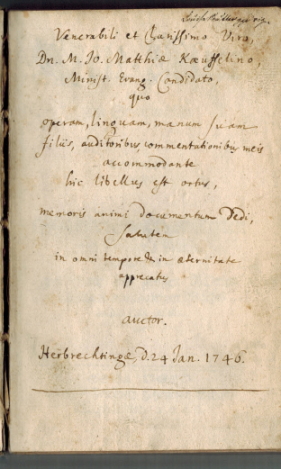 Venerabili et Charissimo Viro,
Dn. M. Jo. Matthiæ Kæuffelino,
Minist. Evang. Candidato,
quo
operam, linguam, manum suam
filiis, auditoribus, commentationibus meis
accommodante
hic libellus est ortus,
memoris animi documentum dedi,
salutem
in omni tempore & in æternitate
apprecatus
auctor.
Herbrechtingæ, d. 24 Jan. 1746.